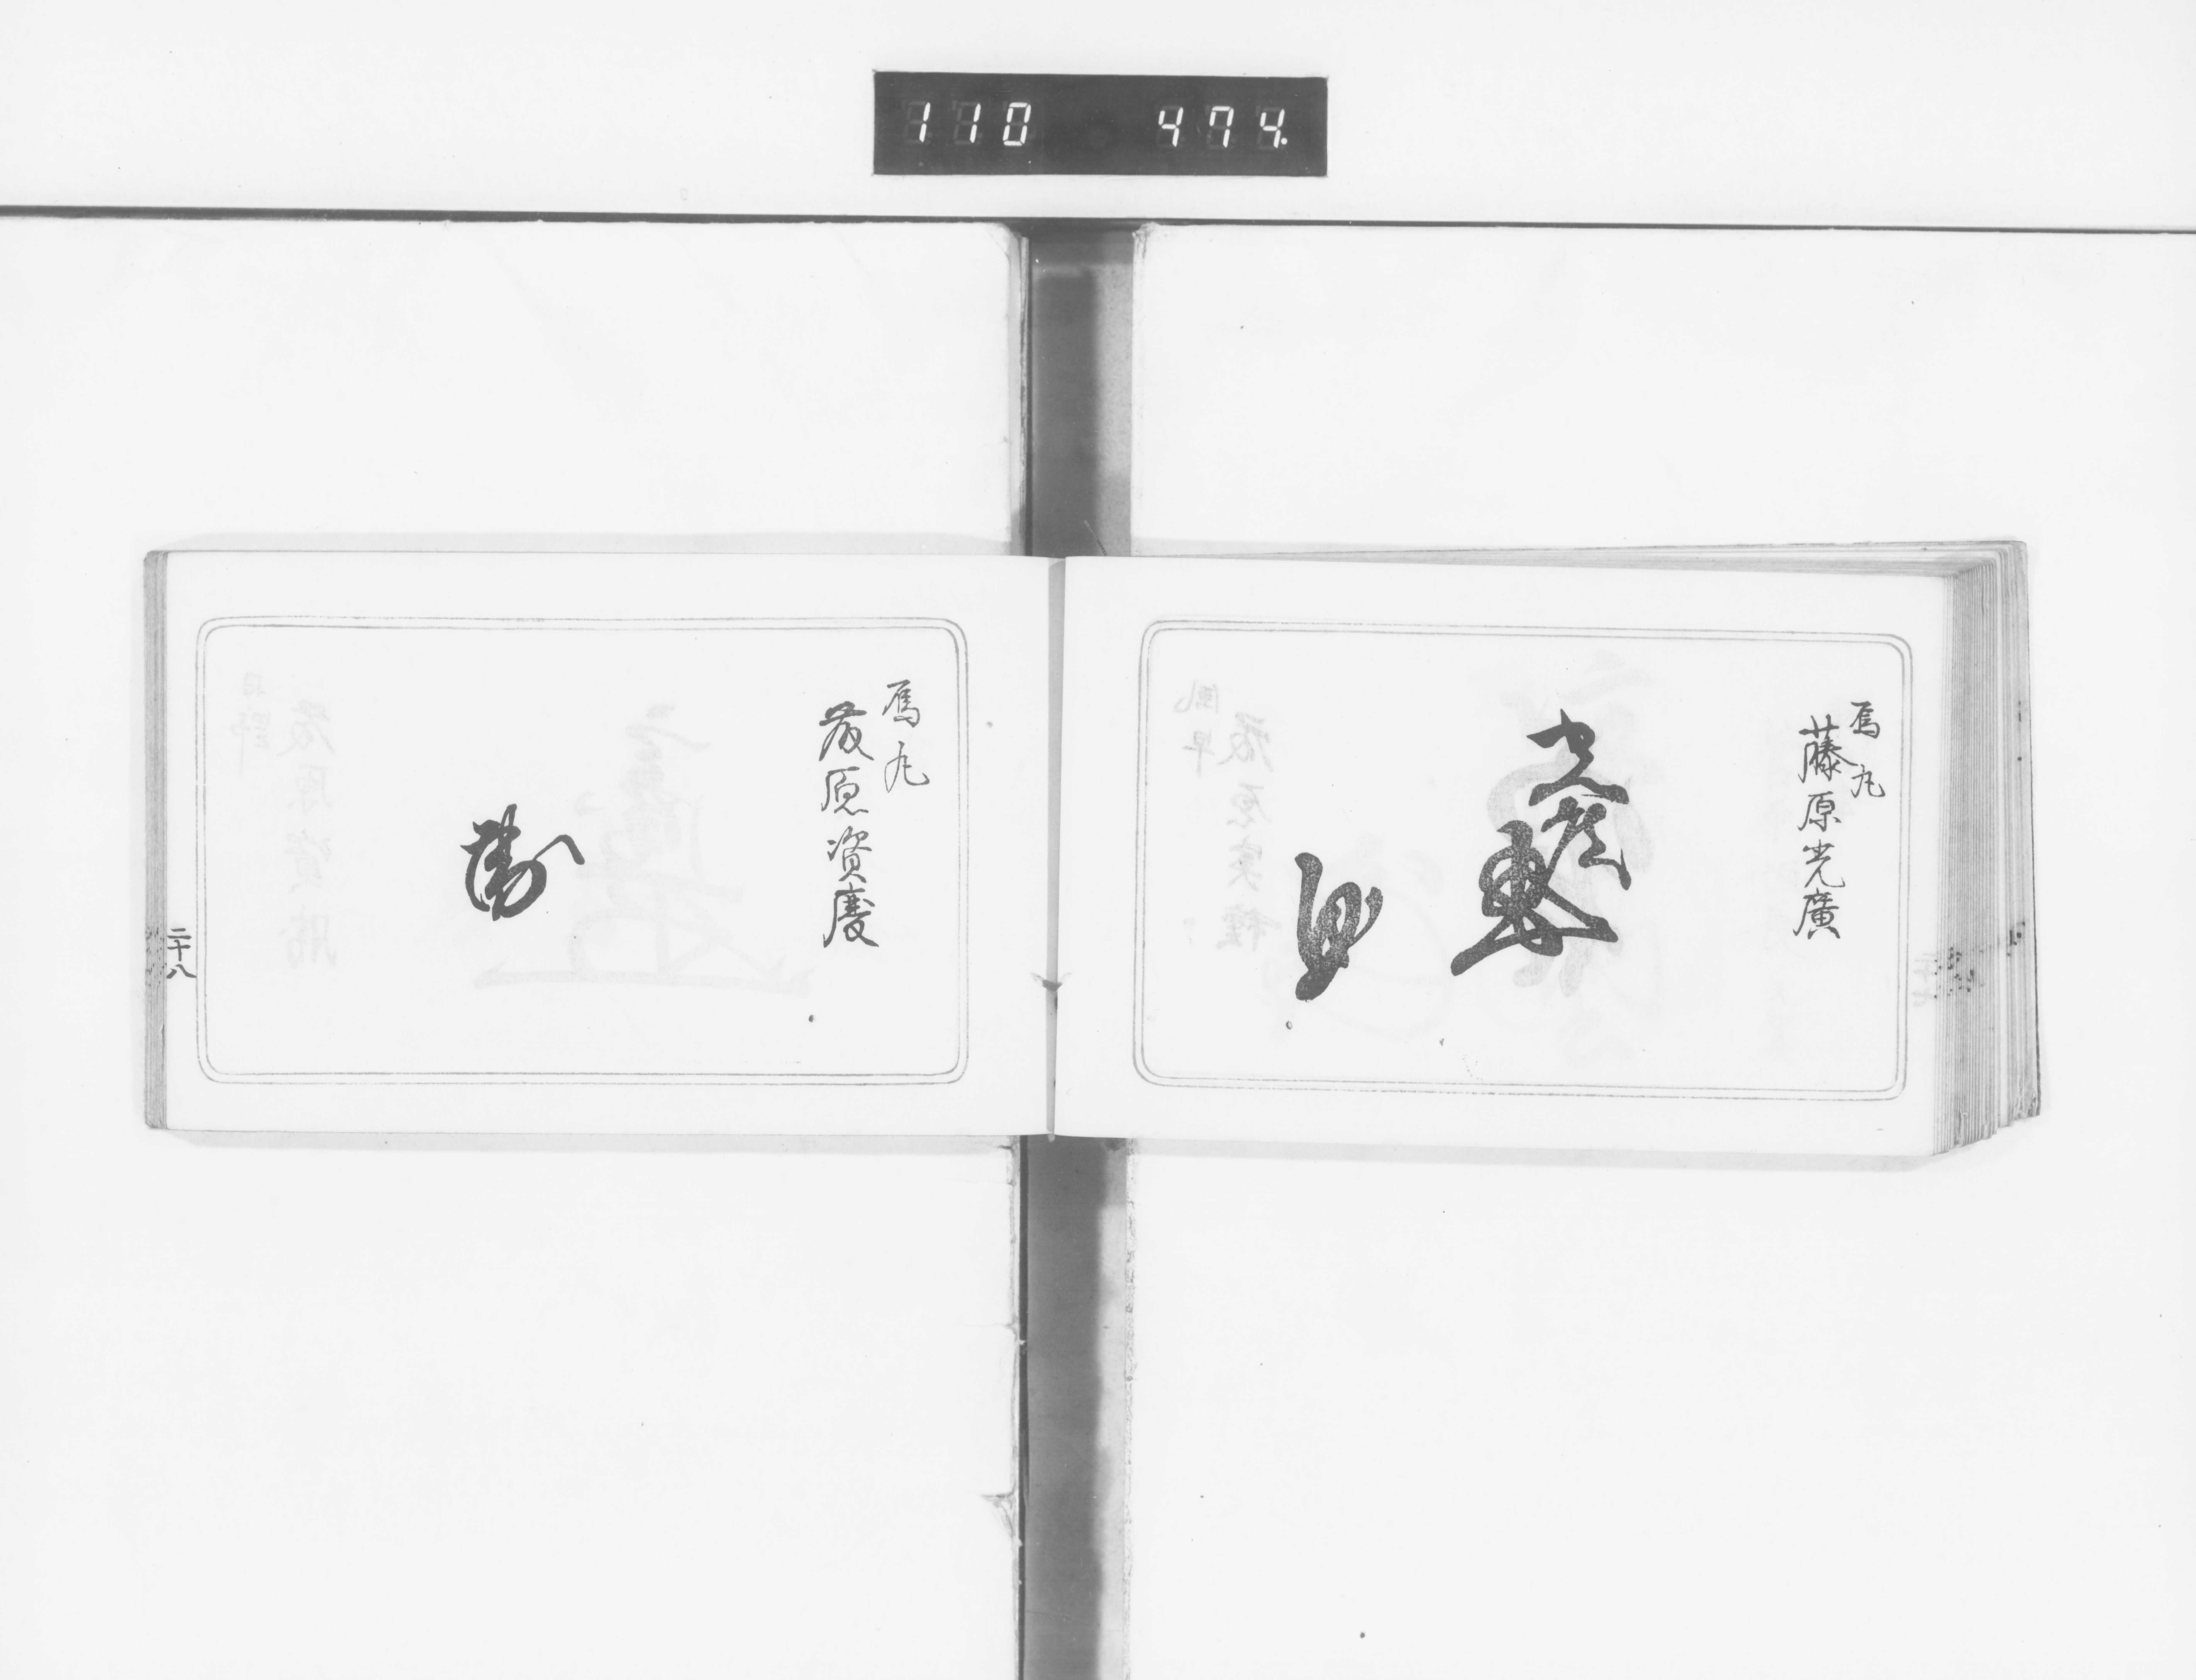 110 474
烏丸
藤原光廣
烏丸
藤原資慶
二十八